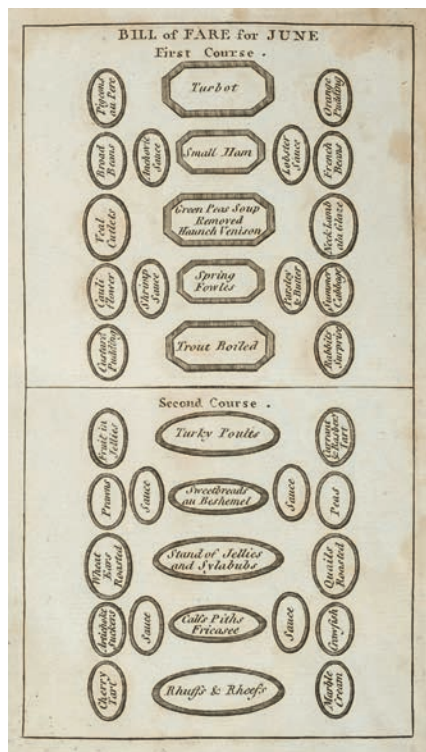 BILL of FARE for JUNE
First Course .
Pigeons
au Pere
Turbot
Orange
Pudding
Broad
Beans
Anchovie
Sauce
Small Ham
Lobster
Sauce
French
Beans
Veal
Cutlets
Green Peas Soup
Removed
Haunch Venison
Neck Lamb
ala Glaze
Cauli
Flower
Shrimp
Sauce
Spring
Fowles
Parsley
& Butter
Summer
Cabbage
Custard
Pudding
Trout Boiled
Rabbits
Surprize
Second Course .
Fruit in
Jellies
Turky Poults
Currant
Tart
Prawns
Sauce
Sweetbreads
au Beshemel
Sauce
Peas
Wheat
Ears
Roasted
Stand of Jellies
and Sylabubs
Quails
Roasted
Artichoke
Suckers
Sauce
Calfs Piths
Fricasee
Sauce
Crawfish
Cherry
Tart
Rhuffs & Rheefs
Marble
Cream